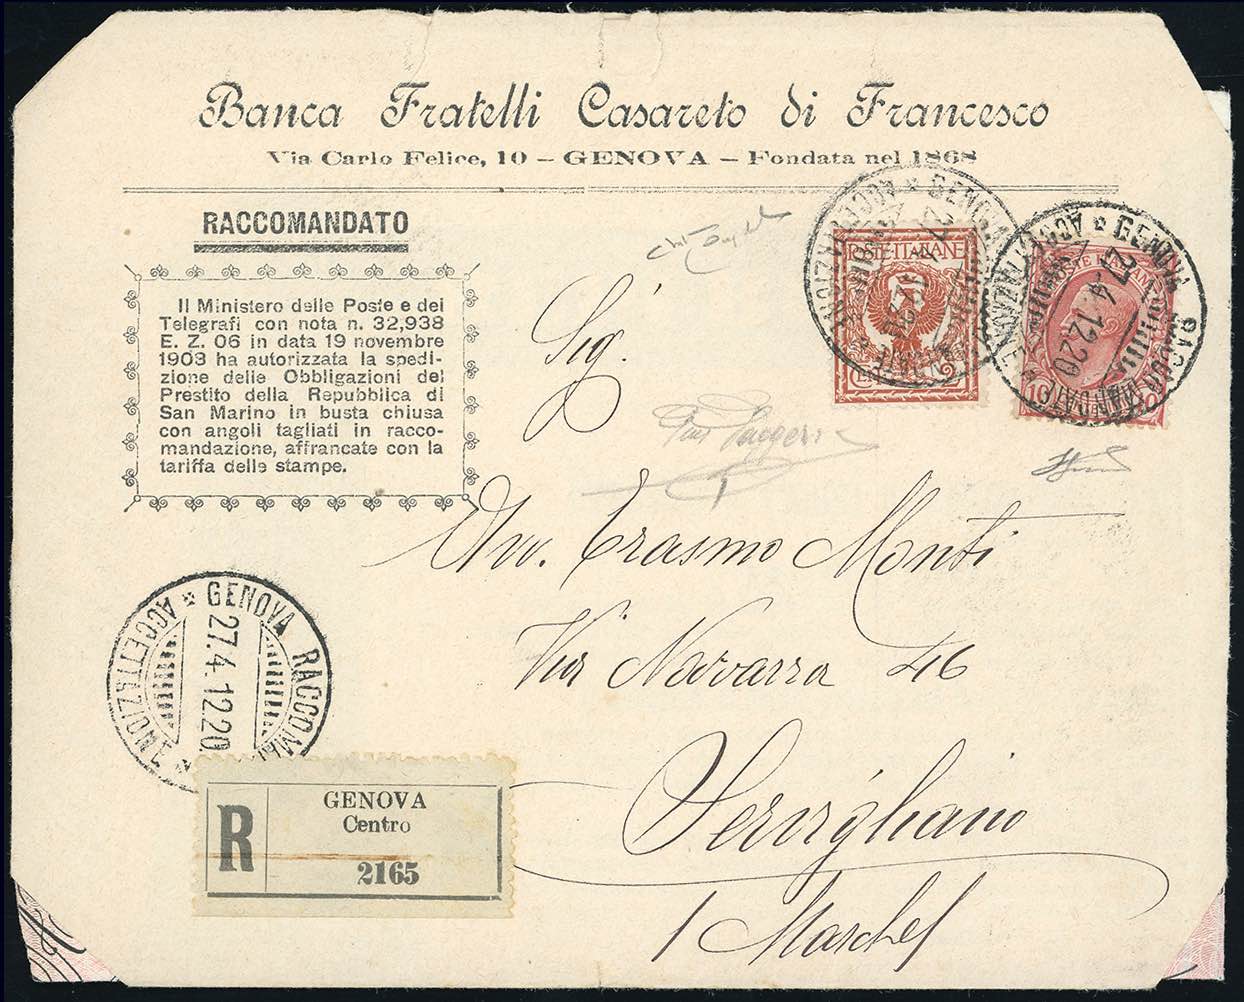 Banca Fratelli Casareto di Francesco
Via Carlo Felice, 10 – GENOVA – Fondata nel 1868
RACCOMANDATO
Il Ministero delle Poste e dei
Telegrafi con nota n. 32,938
E. Z. 06 in data 19 novembre
1903 ha autorizzata la spedi-
zione delle Obbligazioni del
Prestito della Repubblica di
San Marino in busta chiusa
con angoli tagliati in racco-
mandazione, affrancate con la
tariffa delle stampe.
POSTE ITALIANE
GENOVA RACCOMANDATE
ACCETTAZIONE
27.4.12.20
Sig.
Avv. Erasmo Monti
Via Navarra 46
Servigliano
Marche
GENOVA RACCOMAN
ACCETTAZIONE
27.4.12.20
R
GENOVA
Centro
2165